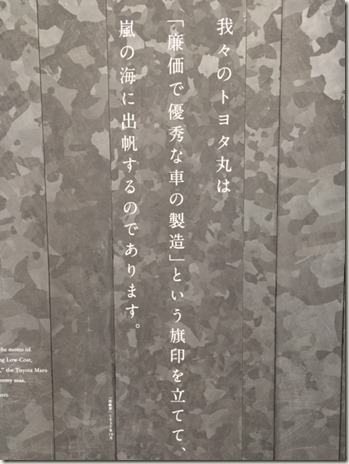 我々のトヨタ丸は
「廉価で優秀な車の製造」という旗印を立てて、
嵐の海に出帆するのであります。
the motto of
ng Low-Cost,
," the Toyota Maru
ormy seas.